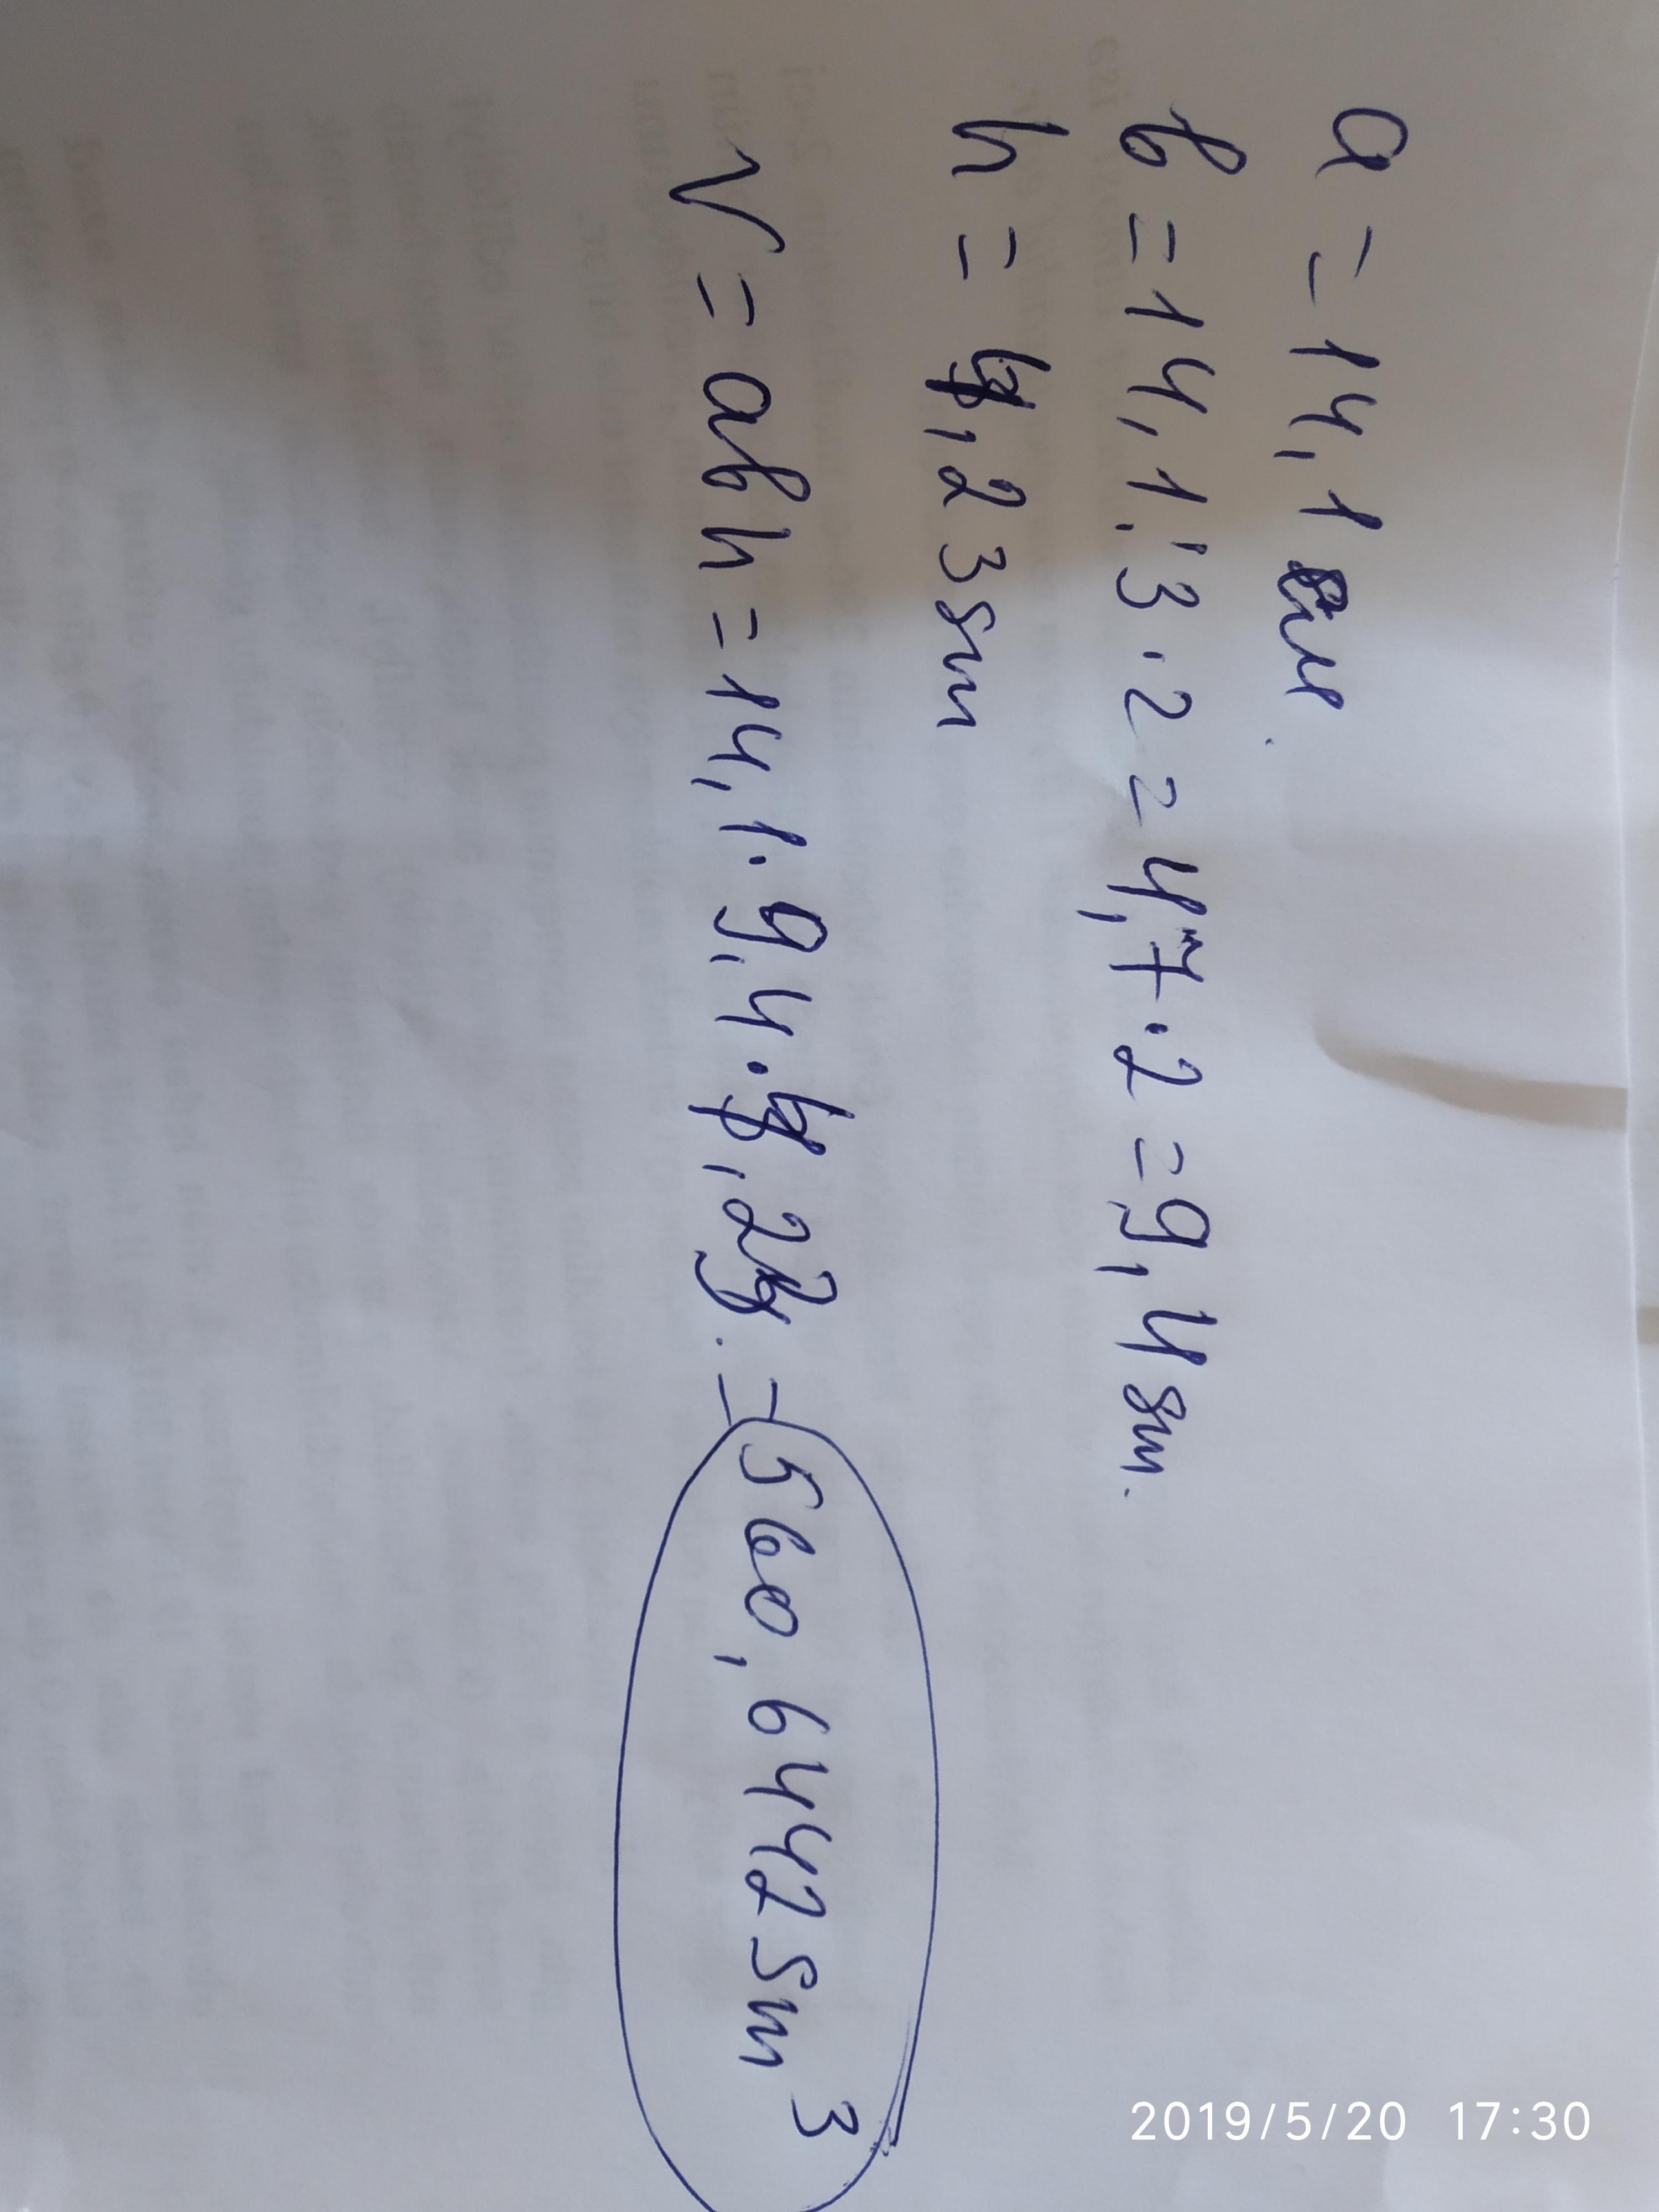 a = 14,1 sm
b = 14,1 : 3 · 2 = 4,7 · 2 = 9,4 sm.
h = 4,23 sm
V = abh = 14,1 · 9,4 · 4,23. = 560,6442 sm³
2019/5/20 17:30